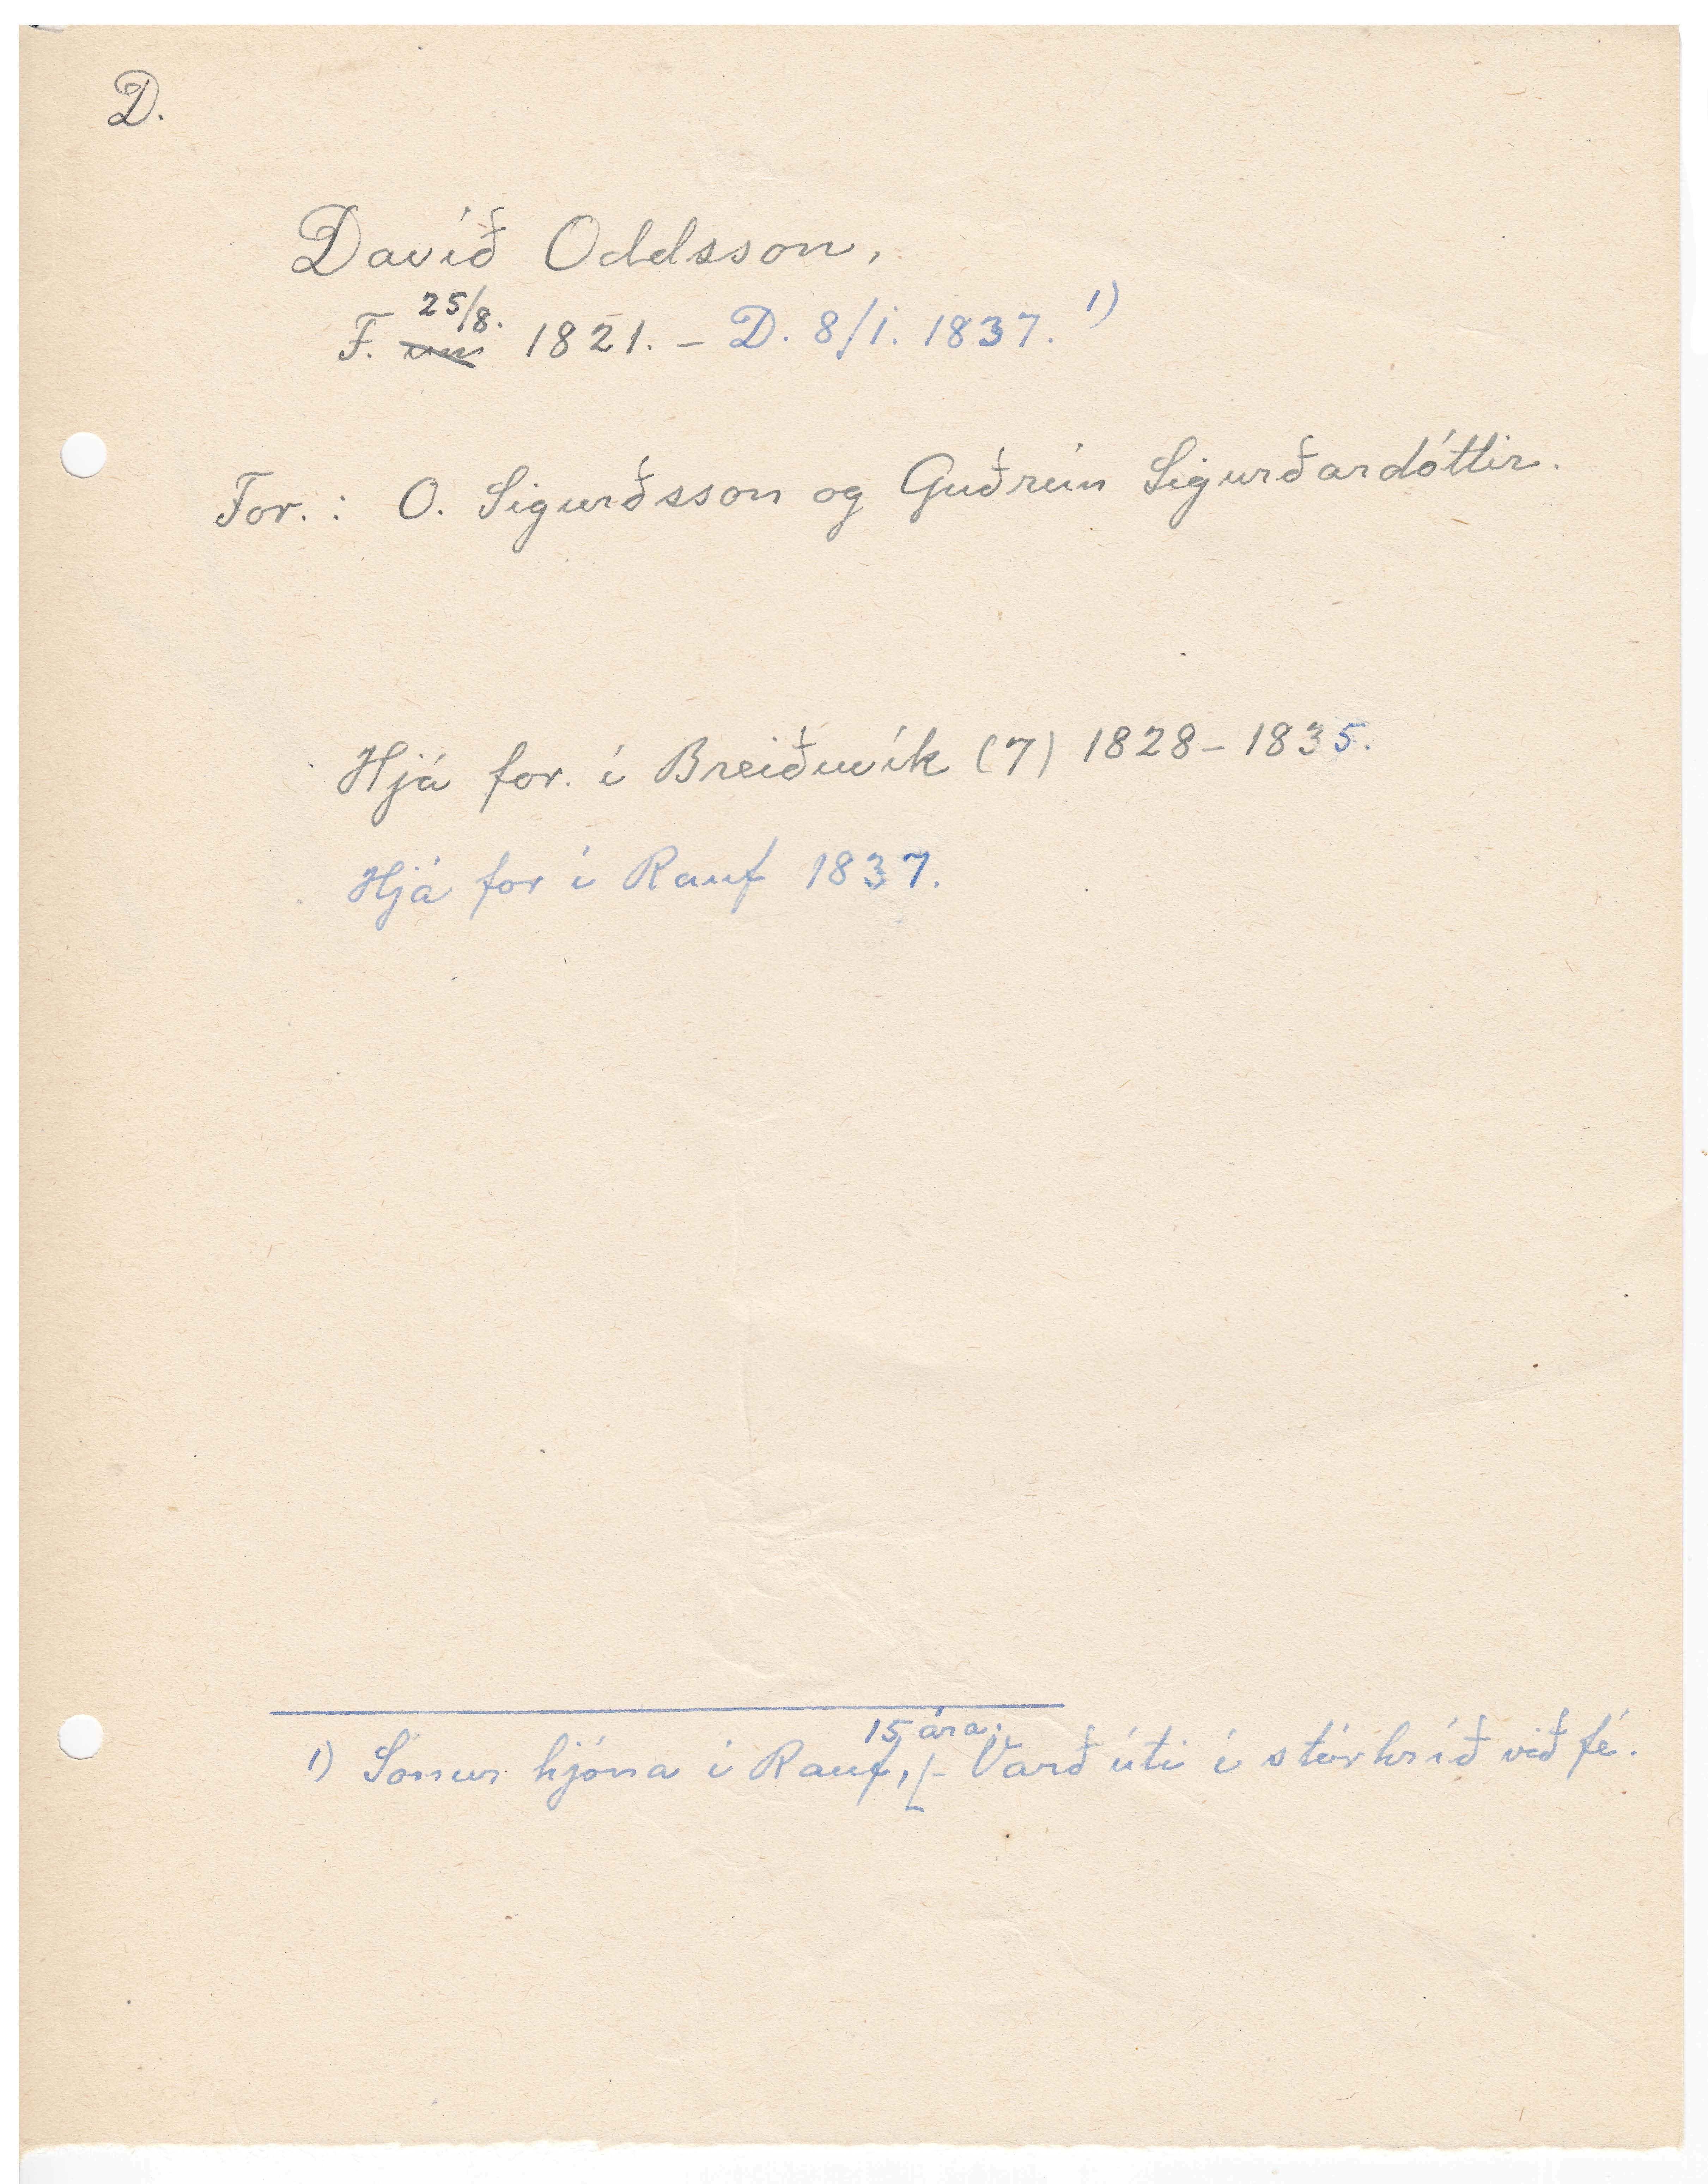 D.
Davíð Oddsson,
F. um 25/8. 1821. – D. 8/1. 1837. 1)
For.: O. Sigurðsson og Guðrún Sigurðardóttir.
Hjá for. í Breiðuvík (7) 1828 – 1835.
Hjá for í Rauf 1837.
1) Sonur hjóna í Rauf, 15 ára. – Varð úti í stórhríð við fé.